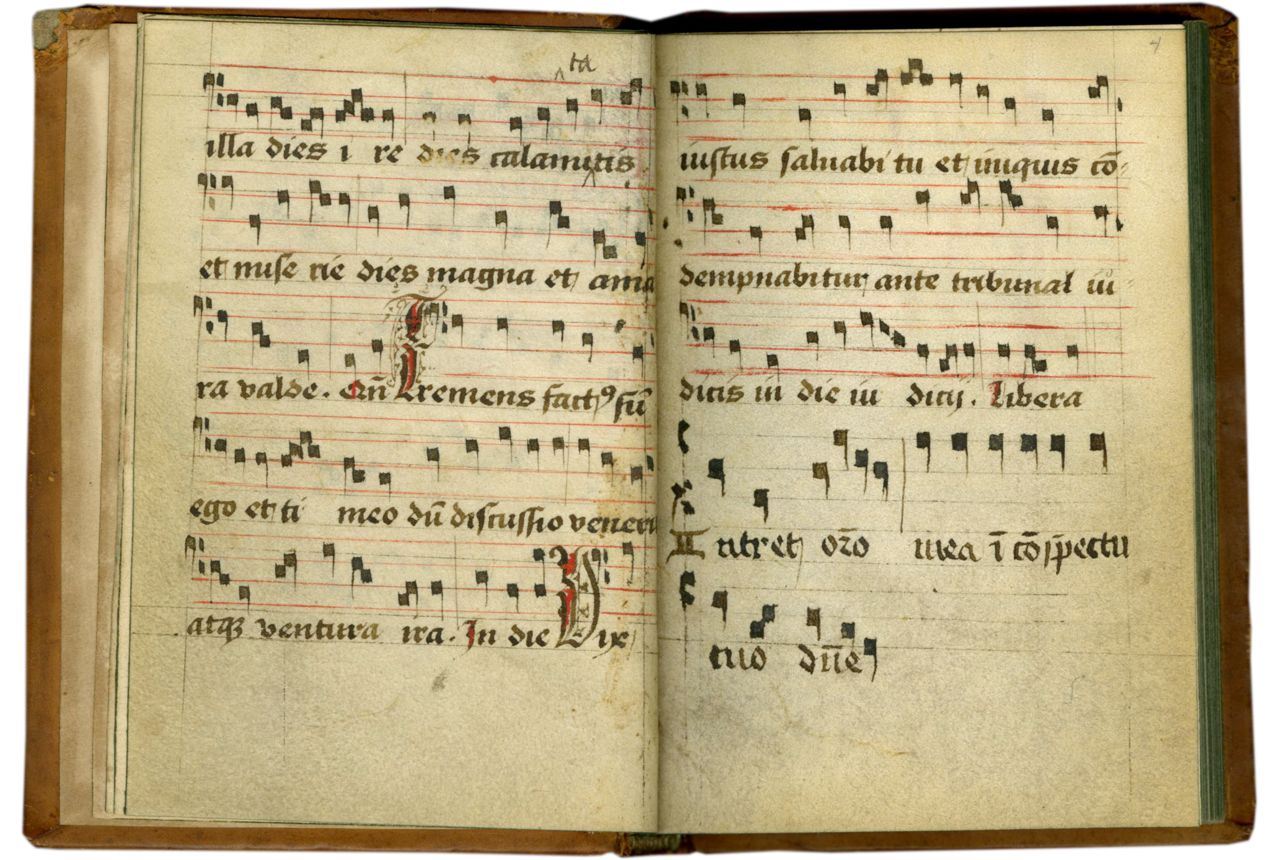 ta
illa dies i re dies calamitis
et mise rie dies magna et ama
ra valde. Qm̄ Tremens fact⁹ sū
ego et ti meo dū discussio veneri
atqꝫ ventura ira. In die Vix
4
iustus saluabi tu et iniquis cō-
dempnabitur ante tribunal iu-
dicis in die iu dicij. Libera
Intret or̄o mea ī cōspectu
tuo dn̄e